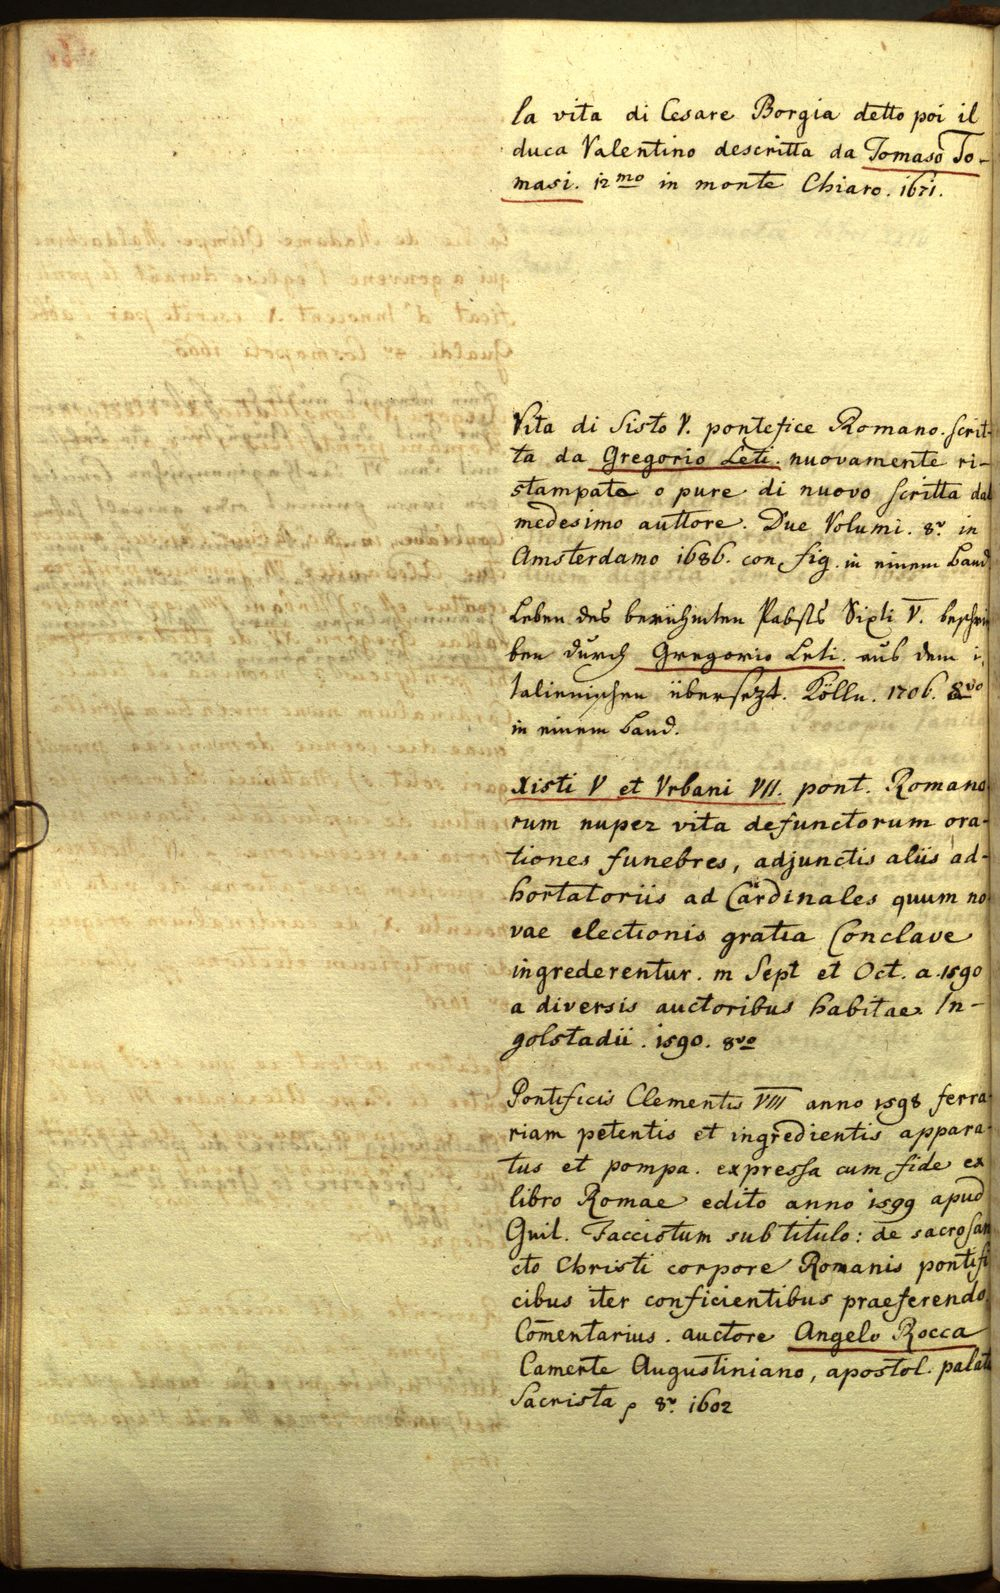 la vita di Cesare Borgia detto poi il
duca Valentino descritta da Tomaso To-
masi. 12mo in monte Chiaro. 1671.
Vita di Sisto V. pontefice Romano. scrit-
ta da Gregorio Leti. nuovamente ri-
stampata o pure di nuovo scritta dal
medesimo auttore. Due Volumi. 8r. in
Amsterdamo 1686. con fig. in einem Band
Leben des berühmten Pabsts Sixti V. beschrie
ben durch Gregorio Leti. aus dem i
talienischen übersezt. Cölln. 1706. 8vo
in einem Band.
Xisti V et Urbani VII. pont. Romano
rum nuper vita defunctorum ora-
tiones funebres, adjunctis aliis ad-
hortatoriis ad Cardinales quum no
vae electionis gratia Conclave
ingrederentur. m Sept et Oct. a. 1590
a diversis auctoribus habitae. In-
golstadii. 1590. 8vo
Pontificis Clementis VIII anno 1598 ferra-
riam petentis et ingredientis appara-
tus et pompa. expressa cum fide ex
libro Romae edito anno 1599 apud
Guil. Facciotum sub titulo: de sacrosan
cto Christi corpore Romanis pontifi
cibus iter conficientibus praeferendo
Com̄entarius. auctore Angelo Rocca
Camerte Augustiniano, apostol. palat
Sacrista 8r. 1602